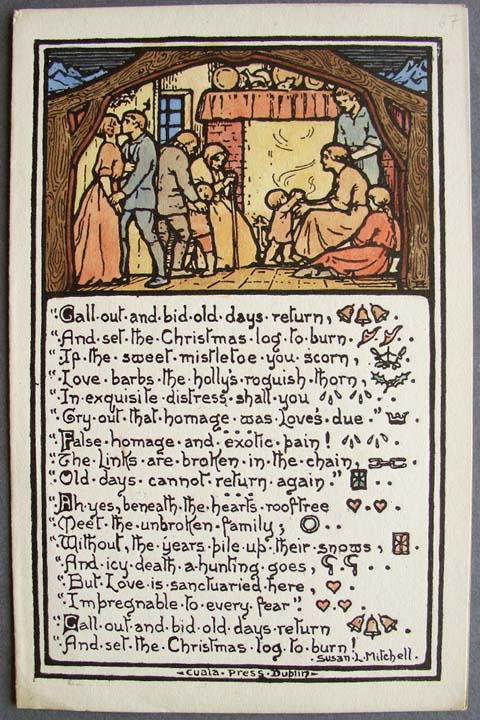 67
"Call·out·and·bid·old·days·return,
"And·set·the·Christmas·log·to·burn·
"If·the·sweet·mistletoe·you·scorn,
"Love·barbs·the·holly's·roguish·thorn,
"In·exquisite·distress·shall·you
"Cry·out·that·homage·was·Love's·due·"
"False·homage·and·exotic·pain!
"The·Links·are·broken·in·the·chain,
"Old·days·cannot·return·again·"
"Ah·yes, beneath·the·hearts·rooftree
"Meet·the·unbroken·family,
"Without, the·years·pile·up·their·snows,
"And·icy·death·a·hunting·goes,
"But·Love·is·sanctuaried·here,
"Impregnable·to·every·fear"
"Call·out·and·bid·old·days·return
"And·set·the·Christmas·log·to·burn!
·Susan·L·Mitchell·
·Cuala·Press·Dublin·